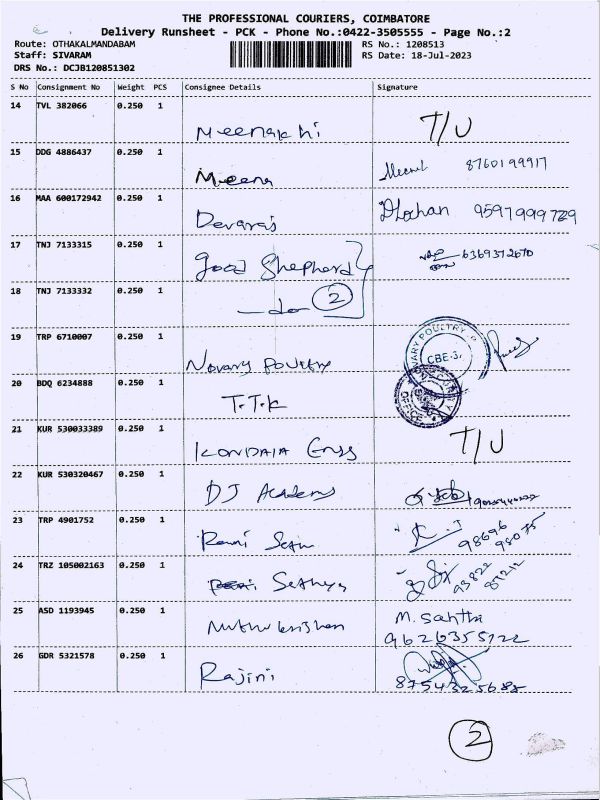 THE PROFESSIONAL COURIERS, COIMBATORE
Delivery Runsheet - PCK - Phone No.:0422-3505555 - Page No.:2
Route: OTHAKALMANDABAM RS No.: 1208513
Staff: SIVARAM RS Date: 18-Jul-2023
DRS No.: DCJB120851302
S No Consignment No Weight PCS Consignee Details Signature
14 TVL 382066 0.250 1 Meenakhi T/U
15 DDG 4886437 0.250 1 Meena 8760199917
16 MAA 600172942 0.250 1 Devaraj 9597999789
17 TNJ 7133315 0.250 1 Good Shepherd 6369372670
18 TNJ 7133332 0.250 1 -do- 2
19 TRP 6710007 0.250 1 Novary Poultry CBE-32
20 BDQ 6234888 0.250 1 T.T.K
21 KUR 530033389 0.250 1 KONDAIA Enss T/U
22 KUR 530320467 0.250 1 DJ Academy
23 TRP 4901752 0.250 1 98696 98075
24 TRZ 105002163 0.250 1 Sathya
25 ASD 1193945 0.250 1 Muthukrishnan M. Sahthi
9626355722
26 GDR 5321578 0.250 1 Rajini
2